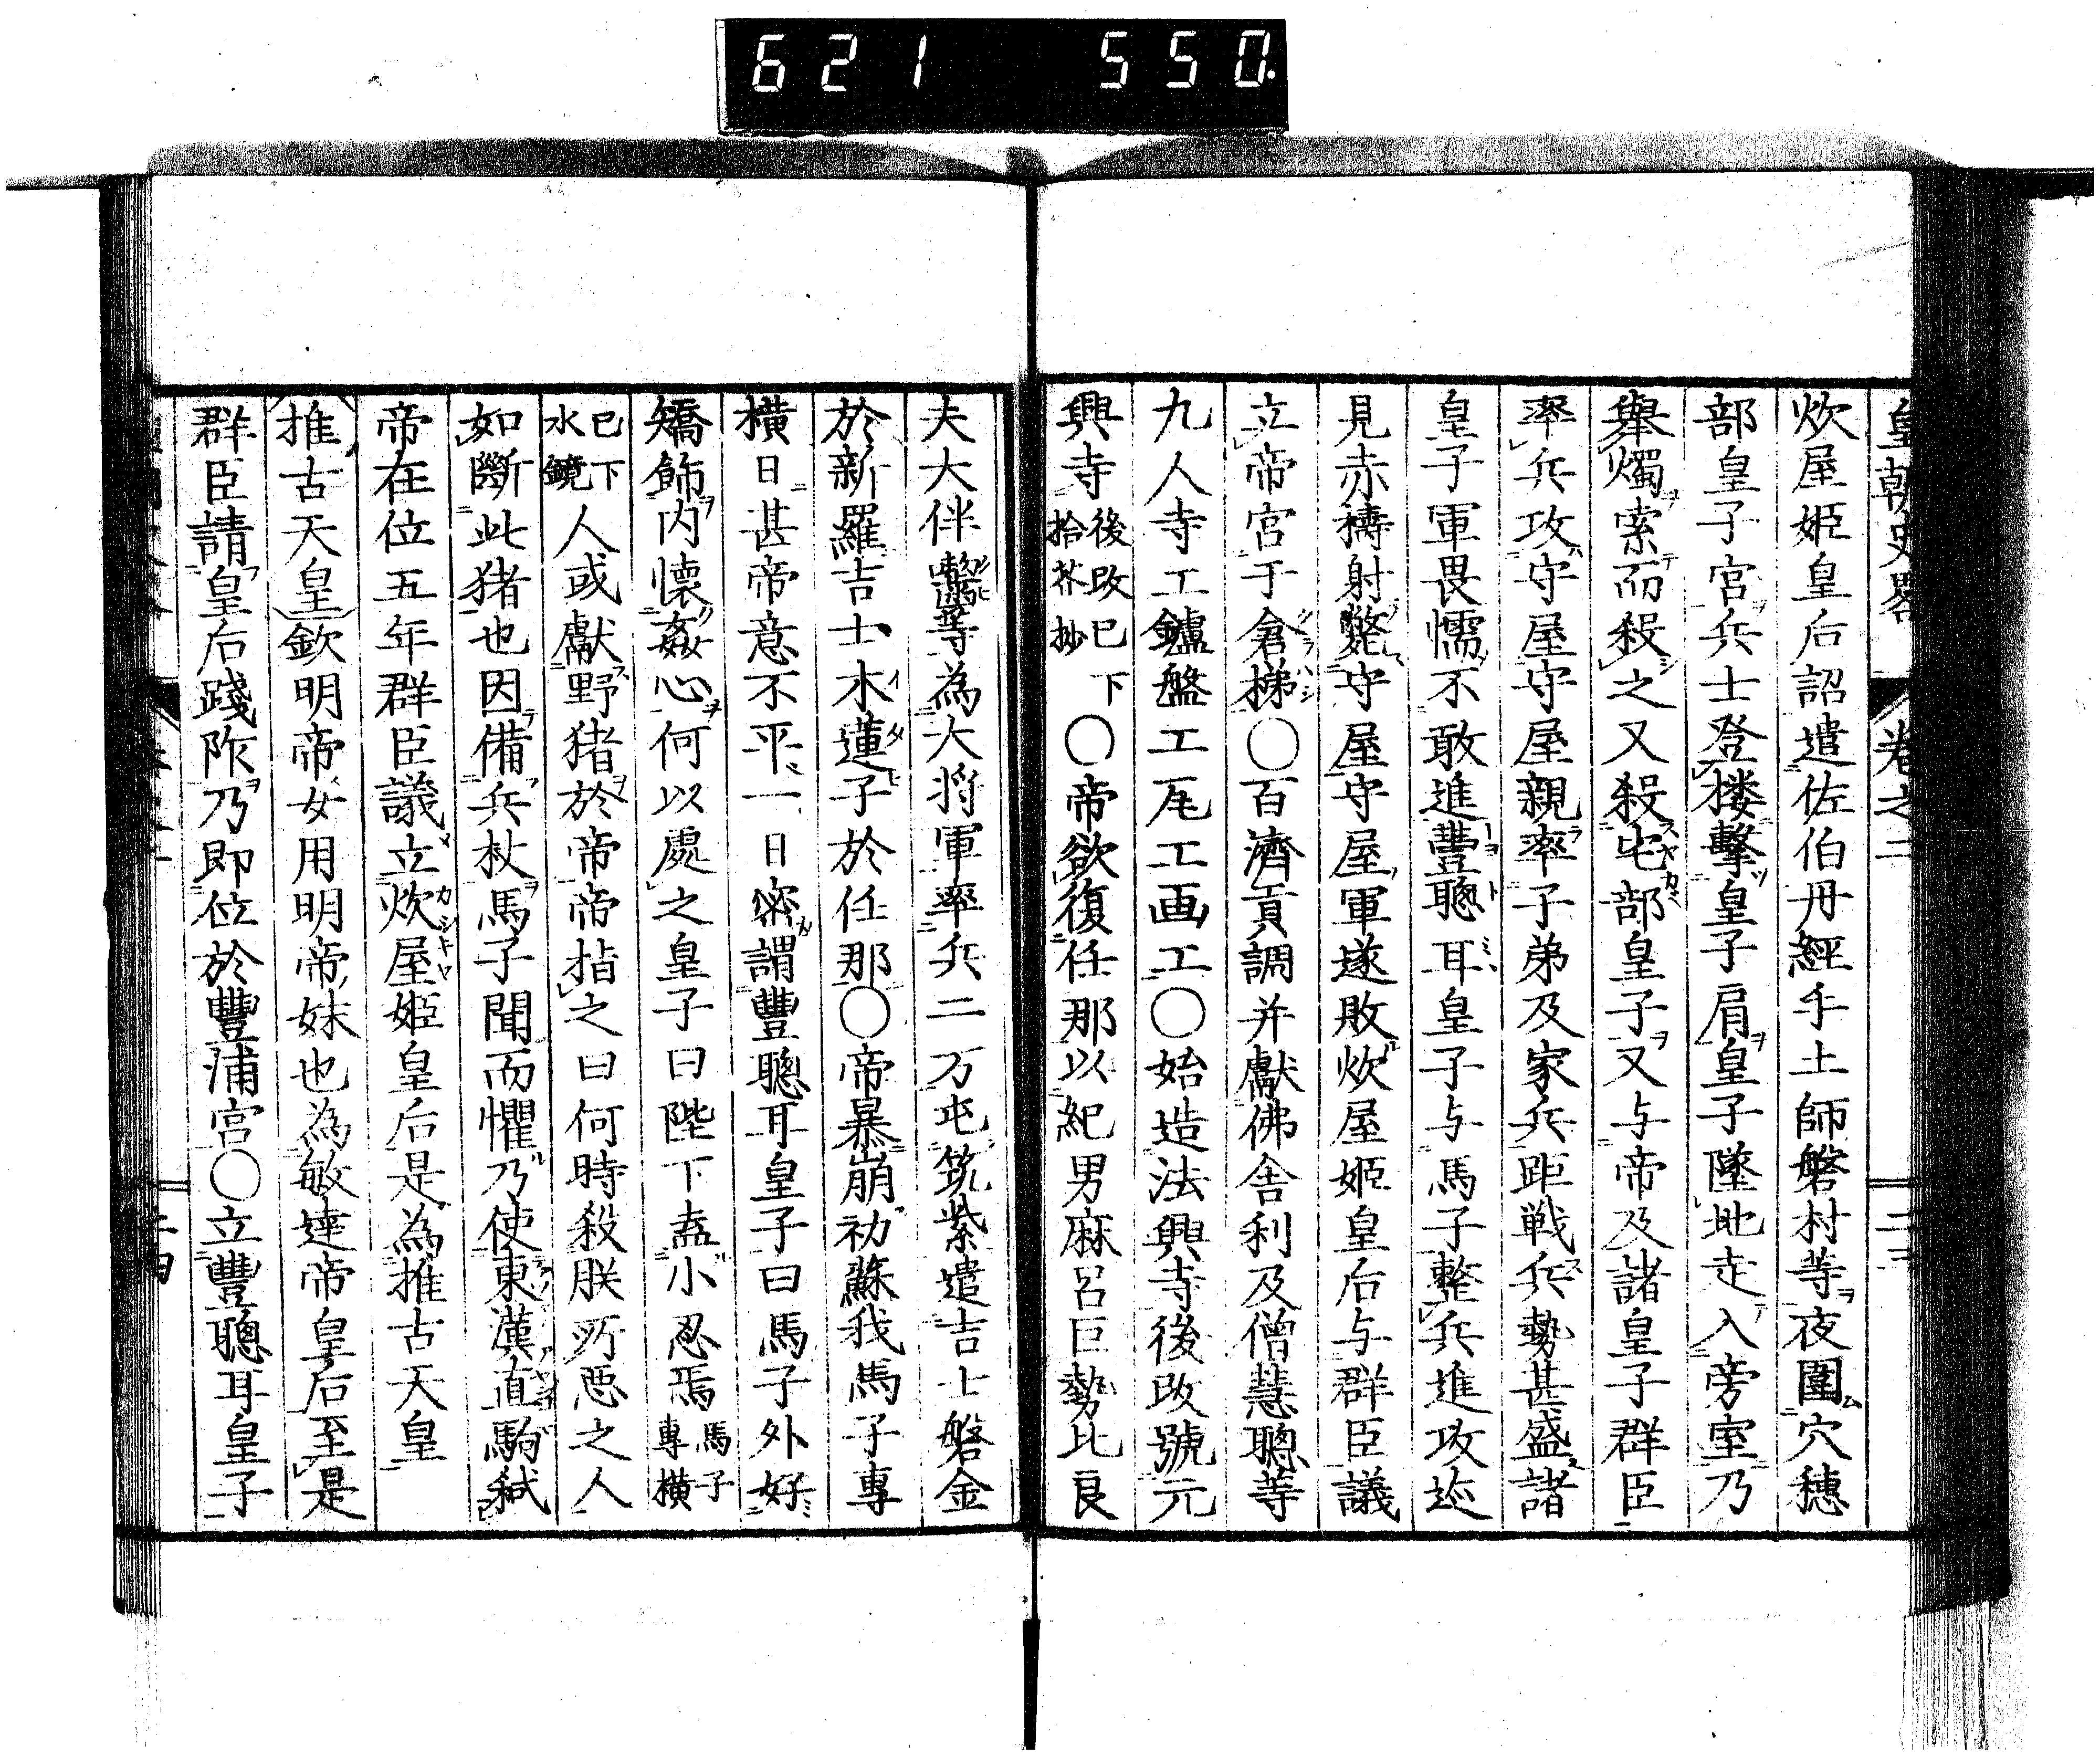 621 550
皇朝史畧 卷之二 二三
炊屋姬皇后詔遣佐伯丹經手土師磐村等夜圍穴穗
部皇子宮兵士登楼擊皇子肩皇子墜地走入旁室乃
舉燭索而殺之又殺宅部皇子又与帝及諸皇子群臣
率兵攻守屋守屋親率子弟及家兵距戦兵勢甚盛諸
皇子軍畏懦不敢進豐聰耳皇子与馬子整兵進攻迹
見赤檮射斃守屋守屋軍遂敗炊屋姬皇后与群臣議
立帝宮于倉梯○百濟貢調并獻佛舍利及僧慧聰等
九人寺工鑪盤工瓦工画工○始造法興寺後改號元
興寺後改已下拾芥抄○帝欲復任那以紀男麻呂巨勢比良
夫大伴囓等為大将軍率兵二万屯筑紫遣吉士磐金
於新羅吉士木蓮子於任那○帝暴崩初蘇我馬子專
橫日甚帝意不平一日密謂豐聰耳皇子曰馬子外好
矯飾内懷姦心何以處之皇子曰陛下盍小忍焉馬子專橫
已下水鏡人或獻野猪於帝帝指之曰何時殺朕所惡之人
如斷此猪也因備兵杖馬子聞而懼乃使東漢直駒弑
帝在位五年群臣議立炊屋姬皇后是為推古天皇
推古天皇欽明帝女用明帝妹也為敏達帝皇后至是
群臣請皇后踐阼乃即位於豐浦宮○立豐聰耳皇子